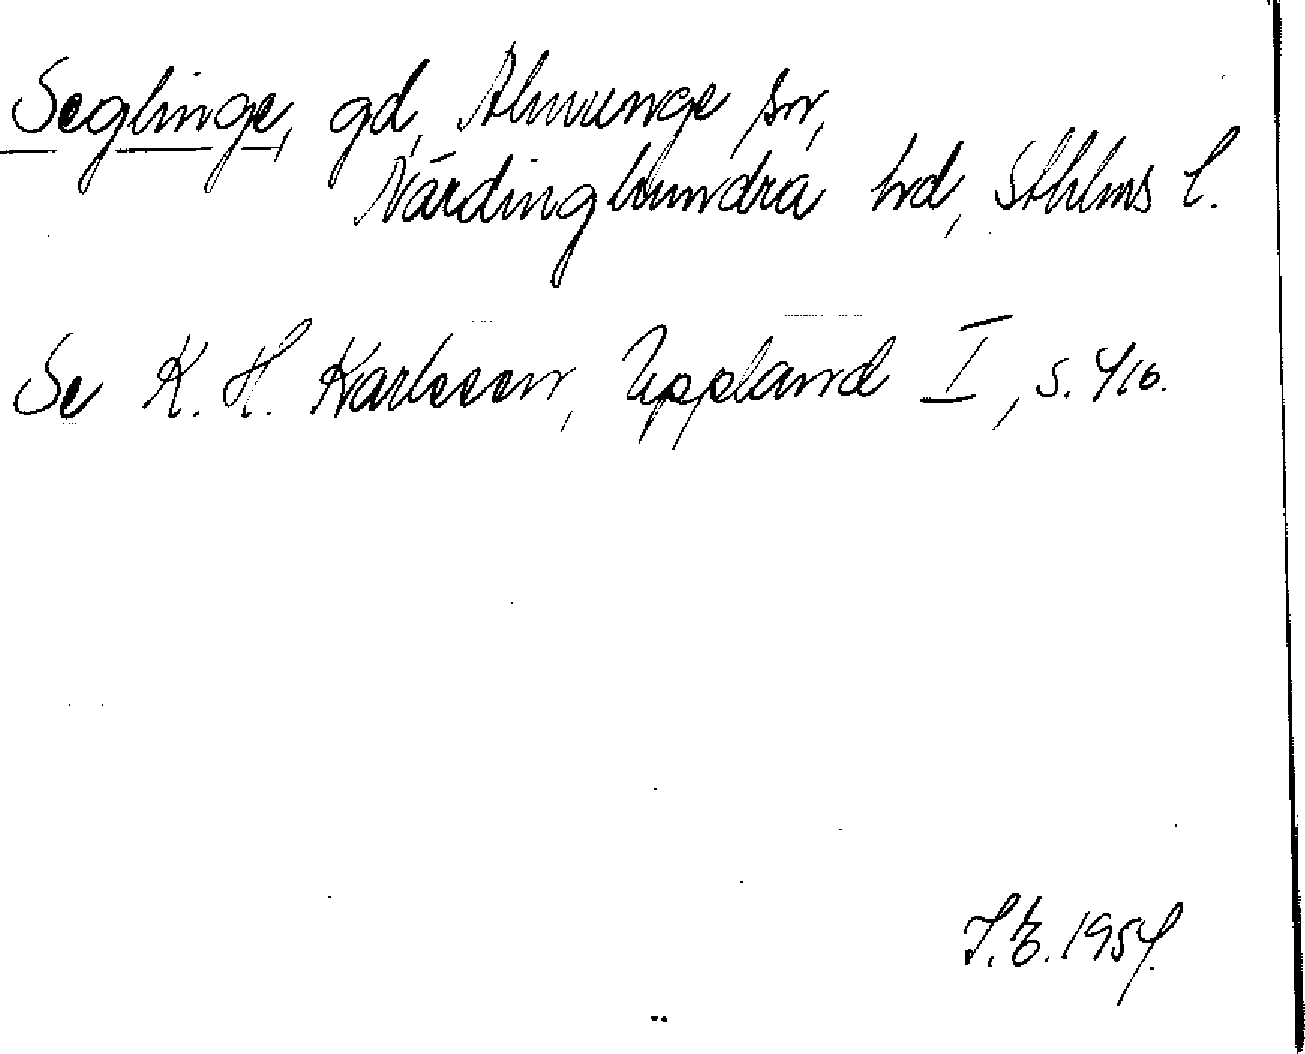 Seglinge, gd, Almunge sn,
Närdinghundra hd, Sthlms l.
Se K. H. Karlsson, Uppland I, s. 410.
J. E. 1954.